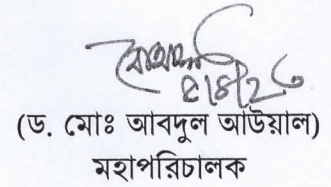 (ড. মোঃ আবদুল আউয়াল)
মহাপরিচালক